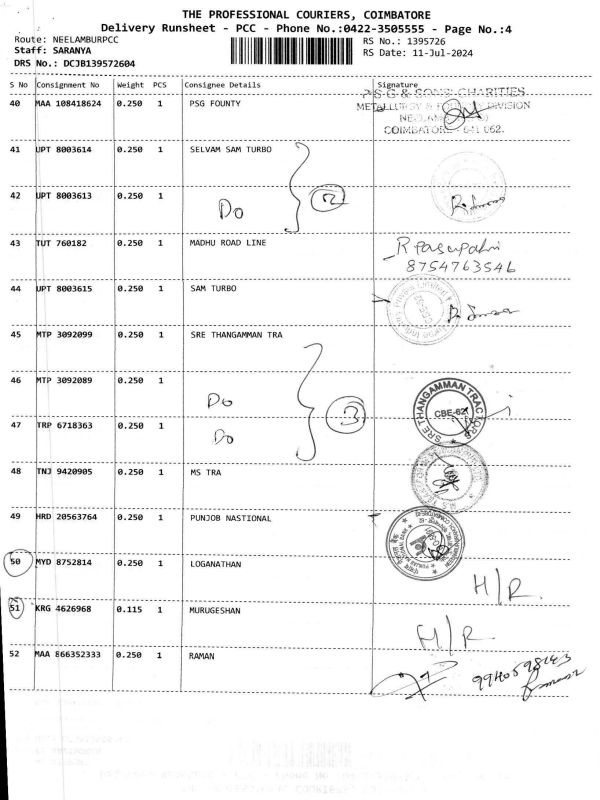 THE PROFESSIONAL COURIERS, COIMBATORE
Delivery Runsheet - PCC - Phone No.:0422-3505555 - Page No.:4
Route: NEELAMBURPCC
Staff: SARANYA
DRS No.: DCJB139572604
RS No.: 1395726
RS Date: 11-Jul-2024
S No Consignment No Weight PCS Consignee Details Signature
40 MAA 108418624 0.250 1 PSG FOUNTY
P.S.G & SONS' CHARITIES
METALLURGY & FOUNDRY DIVISION
COIMBATORE - 641 062.
41 UPT 8003614 0.250 1 SELVAM SAM TURBO
2
42 UPT 8003613 0.250 1 Do
43 TUT 760182 0.250 1 MADHU ROAD LINE
8754763546
44 UPT 8003615 0.250 1 SAM TURBO
45 MTP 3092099 0.250 1 SRE THANGAMMAN TRA
46 MTP 3092089 0.250 1 Do
3
SRE THANGAMMAN TRACTORS
CBE-62
47 TRP 6718363 0.250 1 Do
48 TNJ 9420905 0.250 1 MS TRA
49 HRD 20563764 0.250 1 PUNJOB NASTIONAL
50 MYD 8752814 0.250 1 LOGANATHAN H/R
51 KRG 4626968 0.115 1 MURUGESHAN H/R
52 MAA 866352333 0.250 1 RAMAN